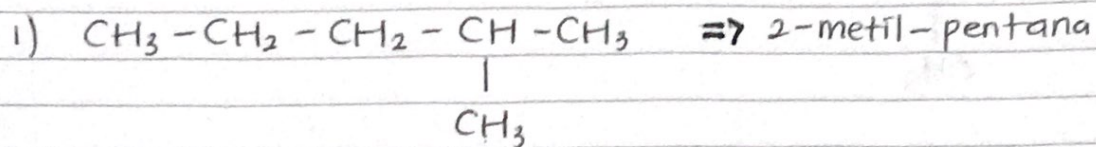 1) CH₃ – CH₂ – CH₂ – CH – CH₃ => 2-metil-pentana
|
CH₃